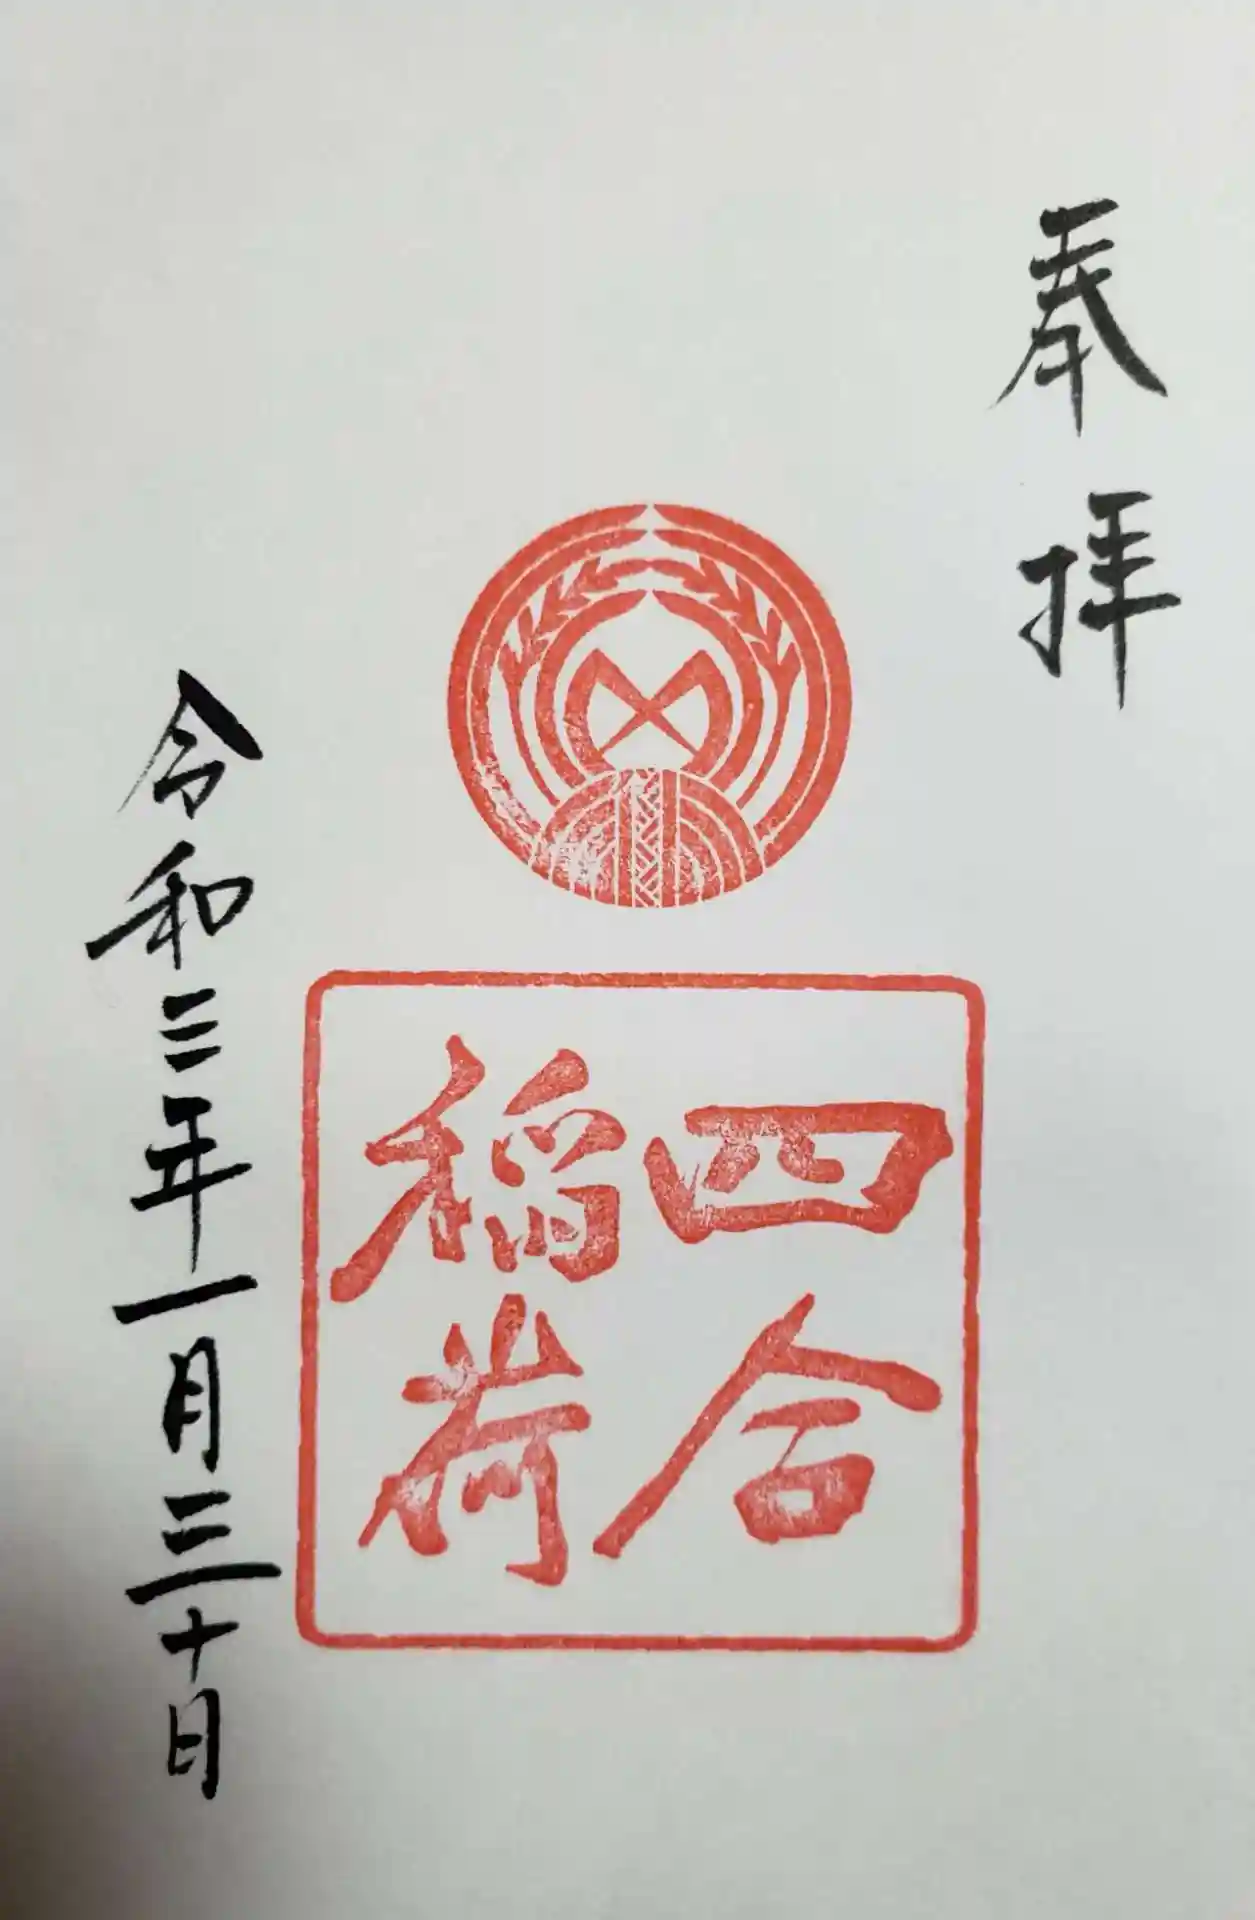 奉拝
四合
稲荷
令和三年一月三十日